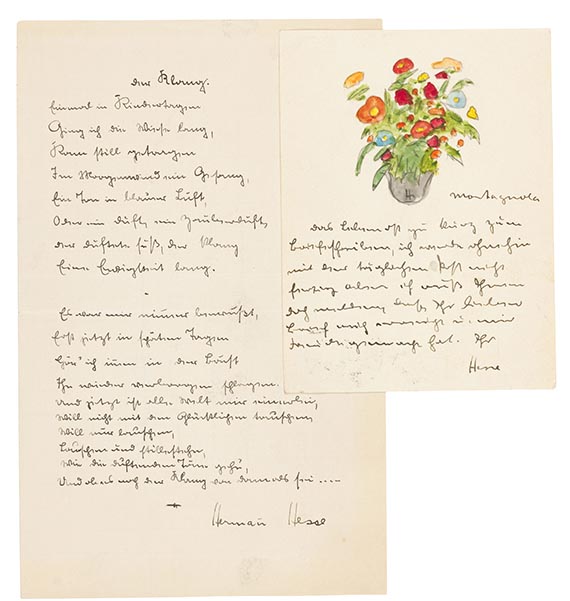 Der Klang.
Einmal in Kindertagen
Ging ich die Wiese lang,
Kam still getragen
Im Morgenwind ein Gesang,
Ein Ton in blauer Luft,
Oder ein Duft, ein Zauberduft,
Der duftete süß, der klang
Eine Ewigkeit lang.
Er war mir nimmer bewußt,
Erst jetzt in späten Tagen
Hör' ich innen in der Brust
Ihn wieder verborgen schlagen.
Und jetzt ist alle Welt mir einerlei,
Will nicht mit den Glücklichen tauschen,
Will nur lauschen,
Lauschen und stillestehn,
Wie die duftenden Töne gehn,
Und ob es noch der Klang von damals sei ....
Herman Hesse
H
Montagnola
Das Leben ist zu kurz zum
Briefschreiben, ich werde ohnehin
mit der täglichen Post nicht
fertig aber ich muß Ihnen
doch melden, daß Ihr lieber
Brief mich erreicht u. mir
gemacht hat. Ihr
Hesse